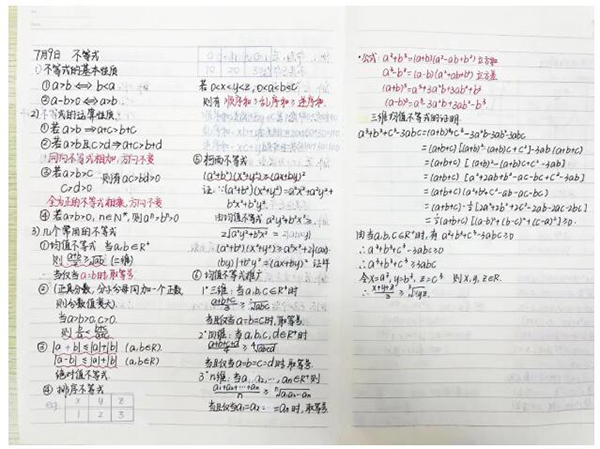 7月9日 不等式
1) 不等式的基本性质
① a>b ⟺ b<a
② a-b>0 ⟺ a>b
2) 不等式的运算性质
① 若 a>b ⇒ a+c>b+c
② 若 a>b 且 c>d ⇒ a+c>b+d
同向不等式相加，方向不变
③ 若 a>b>c 则有 ac>bd>0
c>d>0
全为正的不等式相乘，方向不变
④ 若 a>b>0, n∈N*, 则 aⁿ>bⁿ>0
3) 几个常用的不等式
① 均值不等式 当 a,b∈R⁺
则 (二维)
当仅当 a=b 时 取等号
② (正真分数，分子分母同加一个正数
则分数值变大)
当 a>b>0, c>0.
则
③ |a+b| ≤ |a|+|b| (a,b∈R)
|a-b| ≤ |a|+|b| (a,b∈R)
绝对值不等式
④ 排序不等式
eg. x y z
1 2 3
若 0<x<y<z, 0<a<b<c
则有 顺序和≥乱序和≥逆序和
⑤ 柯西不等式
(a²+b²)(x²+y²) ≥ (ax+by)²
证: ∵ (a²+b²)(x²+y²) = a²x²+a²y²+
b²x²+b²y²
由均值不等式 a²y²+b²x² ≥
∴ (a²+b²)(x²+y²) ≥ a²x²+2(ax)
(by)+b²y² = (ax+by)² 证毕
⑥ 均值不等式推广
1° 三维: 当 a,b,c∈R⁺ 时
(a+b+c)/3 ≥ ³√abc
当且仅当 a=b=c 时, 取等号
2° 四维: 当 a,b,c,d∈R⁺ 时
(a+b+c+d)/4 ≥ ⁴√abcd
当且仅当 a=b=c=d 时 取等号
3° n维: 当 a₁,a₂,…,aₙ∈R⁺ 则
(a₁+a₂+…+aₙ)/n ≥ ⁿ√a₁a₂…aₙ
当且仅当 a₁=a₂=…=aₙ 时, 取等号
·公式: a³+b³=(a+b)(a²-ab+b²) 立方和
a³-b³=(a-b)(a²+ab+b²) 立方差
(a+b)³=a³+3a²b+3ab²+b³
(a-b)³=a³-3a²b+3ab²-b³
三维均值不等式的证明.
a³+b³+c³-3abc=(a+b)³+c³-3a²b-3ab²-3abc
=(a+b+c)[(a+b)²-(a+b)c+c²]-3ab(a+b+c)
=(a+b+c)[(a+b)²-(a+b)c+c²-3ab]
=(a+b+c)[a²+2ab+b²-ac-bc+c²-3ab]
=(a+b+c)(a²+b²+c²-ab-ac-bc)
=(a+b+c)·½[2a²+2b²+2c²-2ab-2ac-2bc]
=½(a+b+c)[(a-b)²+(b-c)²+(c-a)²]≥0.
由当 a,b,c∈R⁺ 时, 有 a³+b³+c³-3abc≥0
∴ a³+b³+c³-3abc≥0
∴ a³+b³+c³≥3abc
令 x=a³, y=b³, z=c³ 则 x,y,z∈R.
∴ (x+y+z)/3 ≥ ³√xyz.